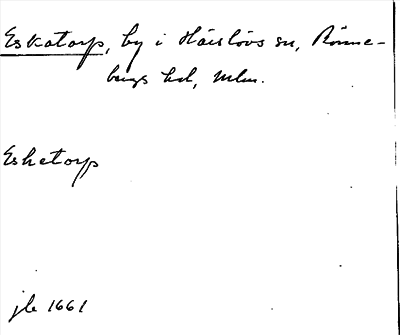 Eskatorp, by i Häislövs sn, Rönne-
bergs hd, Mlm.
Esketorp
jb 1661